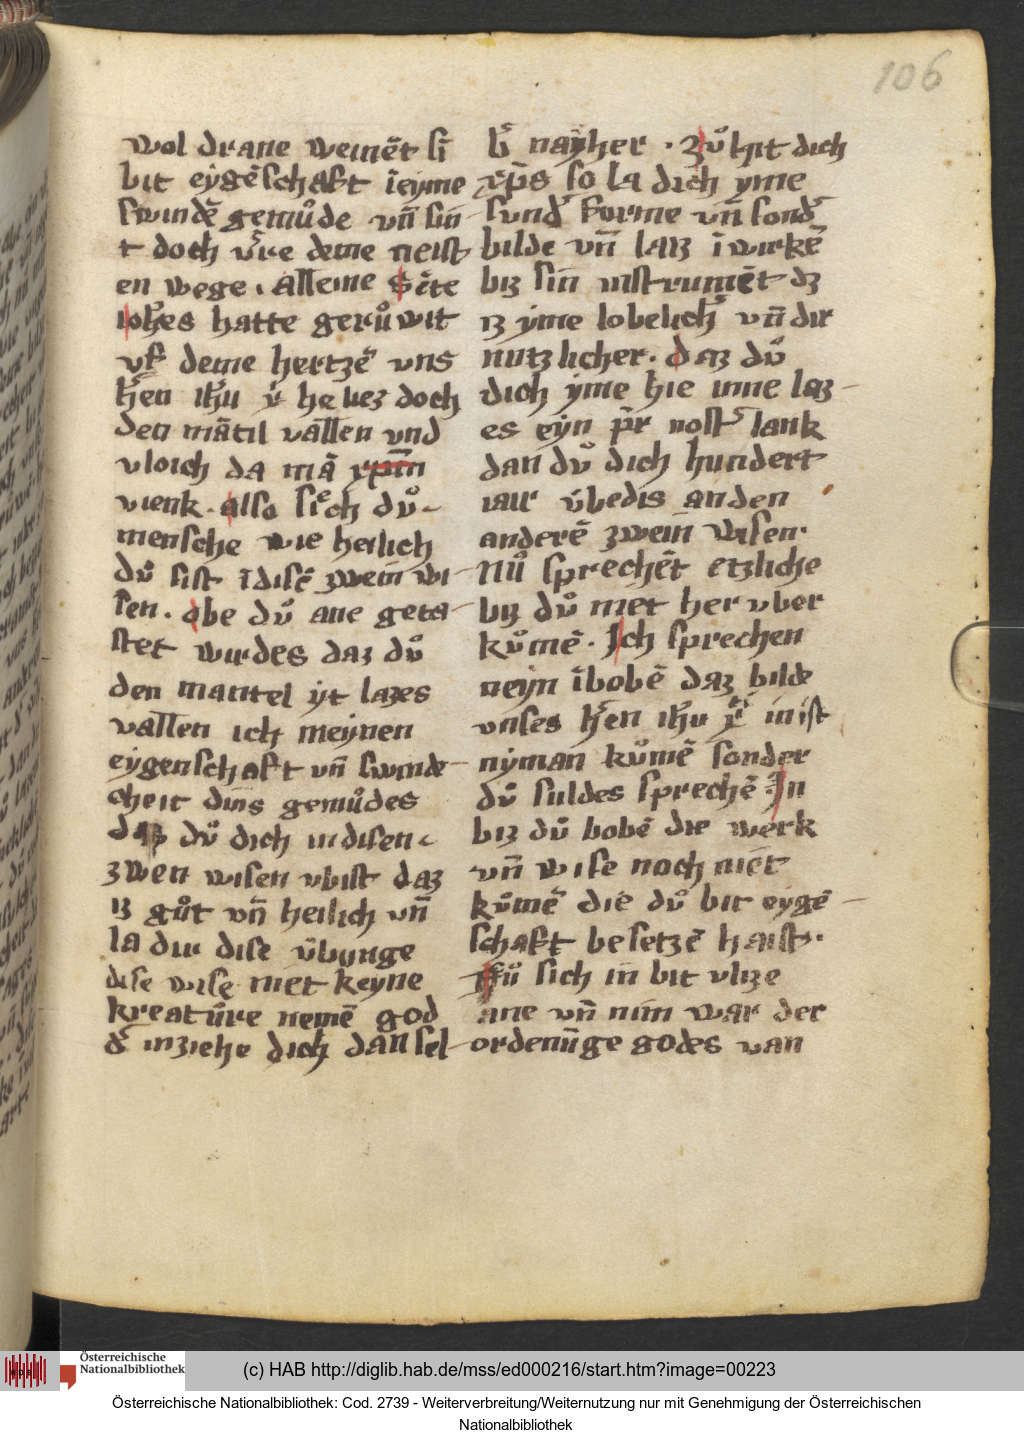 106
wol drane weinēt si
bit eygēschaft īeyme
swindē gemuͦde vn̄ sin
t doch vͤre deme neist
en wege. Alleine Sēte
ioh̄es hatte geruͦwit
vf deme hertzē vns
h̄en ih̄u he liez doch
den mātil vallen vnd
vloich da mā
vienk. also sich duͦ
mensche wie heilich
duͦ sist īdisē zwein wi
sen. obe duͦ ane geta
stet wirdes daz duͦ
den mantel yt lazes
vallen ich meynen
eygenschaft vn̄ swinde
cheit dins gemuͦdes
daz duͦ dich in disen
zwen wisen vbist daz
iz guͦt vn̄ heilich vn̄
la dir dise v̄bunge
dise wise niet keyne
kreatuͦre nemē god
inziehe dich dan sel
nayher. Zuͦ hit dich
so la dich yme
sund' forme vn̄ sond'
bilde vn̄ laiz īwirkē
biz sin instrumēt dz
iz yme lobelich vn̄ dir
nutzlicher. daz duͦ
dich yme hie inne laz
es eyn pr̄ nost' lank
dan duͦ dich hundert
iair v̄bedis an den
anderē zwein wisen.
Nuͦ sprechēt etzliche
biz duͦ niet her vber
kuͦmē. Ich sprechen
neyn ībobē daz bilde
vnses h̄en ih̄u in ist
nyman kuͦmē sonder
duͦ suldes sprechē In
biz duͦ bobē die werk
vn̄ wise noch niet
kuͦmē die duͦ bit eygē
schaft besetzē haist.
sich in bit vlize
ane vn̄ nim war der
ordenūge godes van
Österreichische
Nationalbibliothek
(c) HAB http://diglib.hab.de/mss/ed000216/start.htm?image=00223
Österreichische Nationalbibliothek: Cod. 2739 - Weiterverbreitung/Weiternutzung nur mit Genehmigung der Österreichischen
Nationalbibliothek